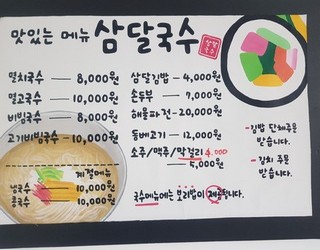 맛있는 메뉴 삼달국수
멸치국수 — 8,000원
멸고국수 — 10,000원
비빔국수 — 8,000원
고기비빔국수 — 10,000원
계절메뉴
냉국수 10,000원
콩국수 10,000원
삼달김밥 — 4,000원
손두부 — 7,000원
해물파전 - 20,000원
돔베고기 — 12,000원
소주/맥주/막걸리 4,000
— 5,000원
국수메뉴에는 보리밥이 제공됩니다.
- 김밥 단체주문
받습니다.
- 김치 주문
받습니다.